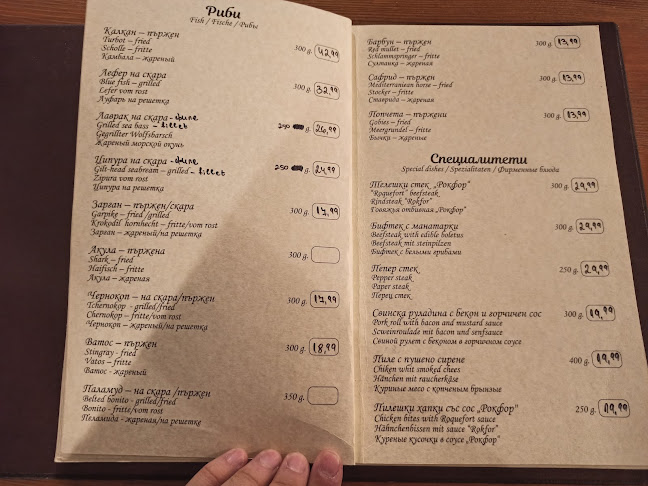 Риби
Fish / Fische / Рыбы
Калкан – пържен
Turbot – fried
Scholle – fritte
Камбала – жареный
300 g. 42,99
Лефер на скара
Blue fish – grilled
Lefer vom rost
Луфарь на решетка
300 g. 32,99
Лаврак на скара - филе
Grilled sea bass – fillet
Gegrillter Wolfsbarsch
Жареный морской окунь
250 g. 26,99
Ципура на скара - филе
Gilt-head seabream – grilled - fillet
Zipura vom rost
Ципура на решетка
250 g. 24,99
Зарган – пържен/скара
Garpike – fried/grilled
Krokodil hornhecht – fritte/vom rost
Зарган – жареный/на решетка
300 g. 17,99
Акула – пържена
Shark – fried
Haifisch – fritte
Акула – жареная
300 g.
Чернокоп – на скара/пържен
Tchernokop - grilled/fried
Chernokop – fritte/vom rost
Чернокоп – жареный/на решетка
300 g. 17,99
Ватос – пържен
Stingray - fried
Vatos – fritte
Ватос - жареный
300 g. 18,99
Паламуд – на скара /пържен
Belted bonito - grilled/fried
Bonito - fritte/vom rost
Пеламида - жареная/на решетке
350 g.
Барбун – пържен
Red mullet – fried
Schlammspringer – fritte
Султанка – жареная
300 g. 13,99
Сафрид – пържен
Mediterranean horse – fried
Stocker – fritte
Ставрида – жареная
300 g. 13,99
Попчета – пържени
Gobies – fried
Meergrundel – fritte
Бычки – жареные
300 g. 13,99
Специалитети
Special dishes / Spezialitaten / Фирменные блюда
Телешки стек „Рокфор"
"Roquefort" beefsteak
Rindsteak "Rokfor"
Говяжья отбивная „Рокфор"
300 g. 29,99
Бифтек с манатарки
Beefsteak with edible boletus
Beefsteak mit steinpilzen
Бифтекс с белыми грибами
300 g. 29,99
Пепер стек
Pepper steak
Paper steak
Перец стек
250 g. 29,99
Свинска руладина с бекон и горчичен сос
Pork roll with bacon and mustard sauce
Scweinroulade mit bacon und senfsauce
Свиной рулет с беконом в горчичном соусе
300 g. 19,99
Пиле с пушено сирене
Chiken whit smoked chees
Hänchen mit raucherkäse
Куриные месо с копченым брынзые
400 g. 19,99
Пилешки хапки със сос „Рокфор"
Chicken bites with Roquefort sauce
Hähnchenbissen mit sauce "Rokfor"
Куреные кусочки в соусе „Рокфор"
250 g. 19,99